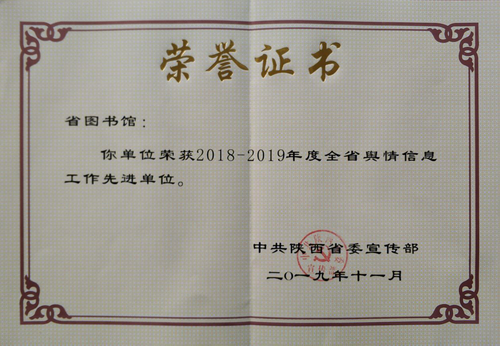 荣誉证书
省图书馆：
你单位荣获2018-2019年度全省舆情信息
工作先进单位。
中共陕西省委宣传部
二〇一九年十一月